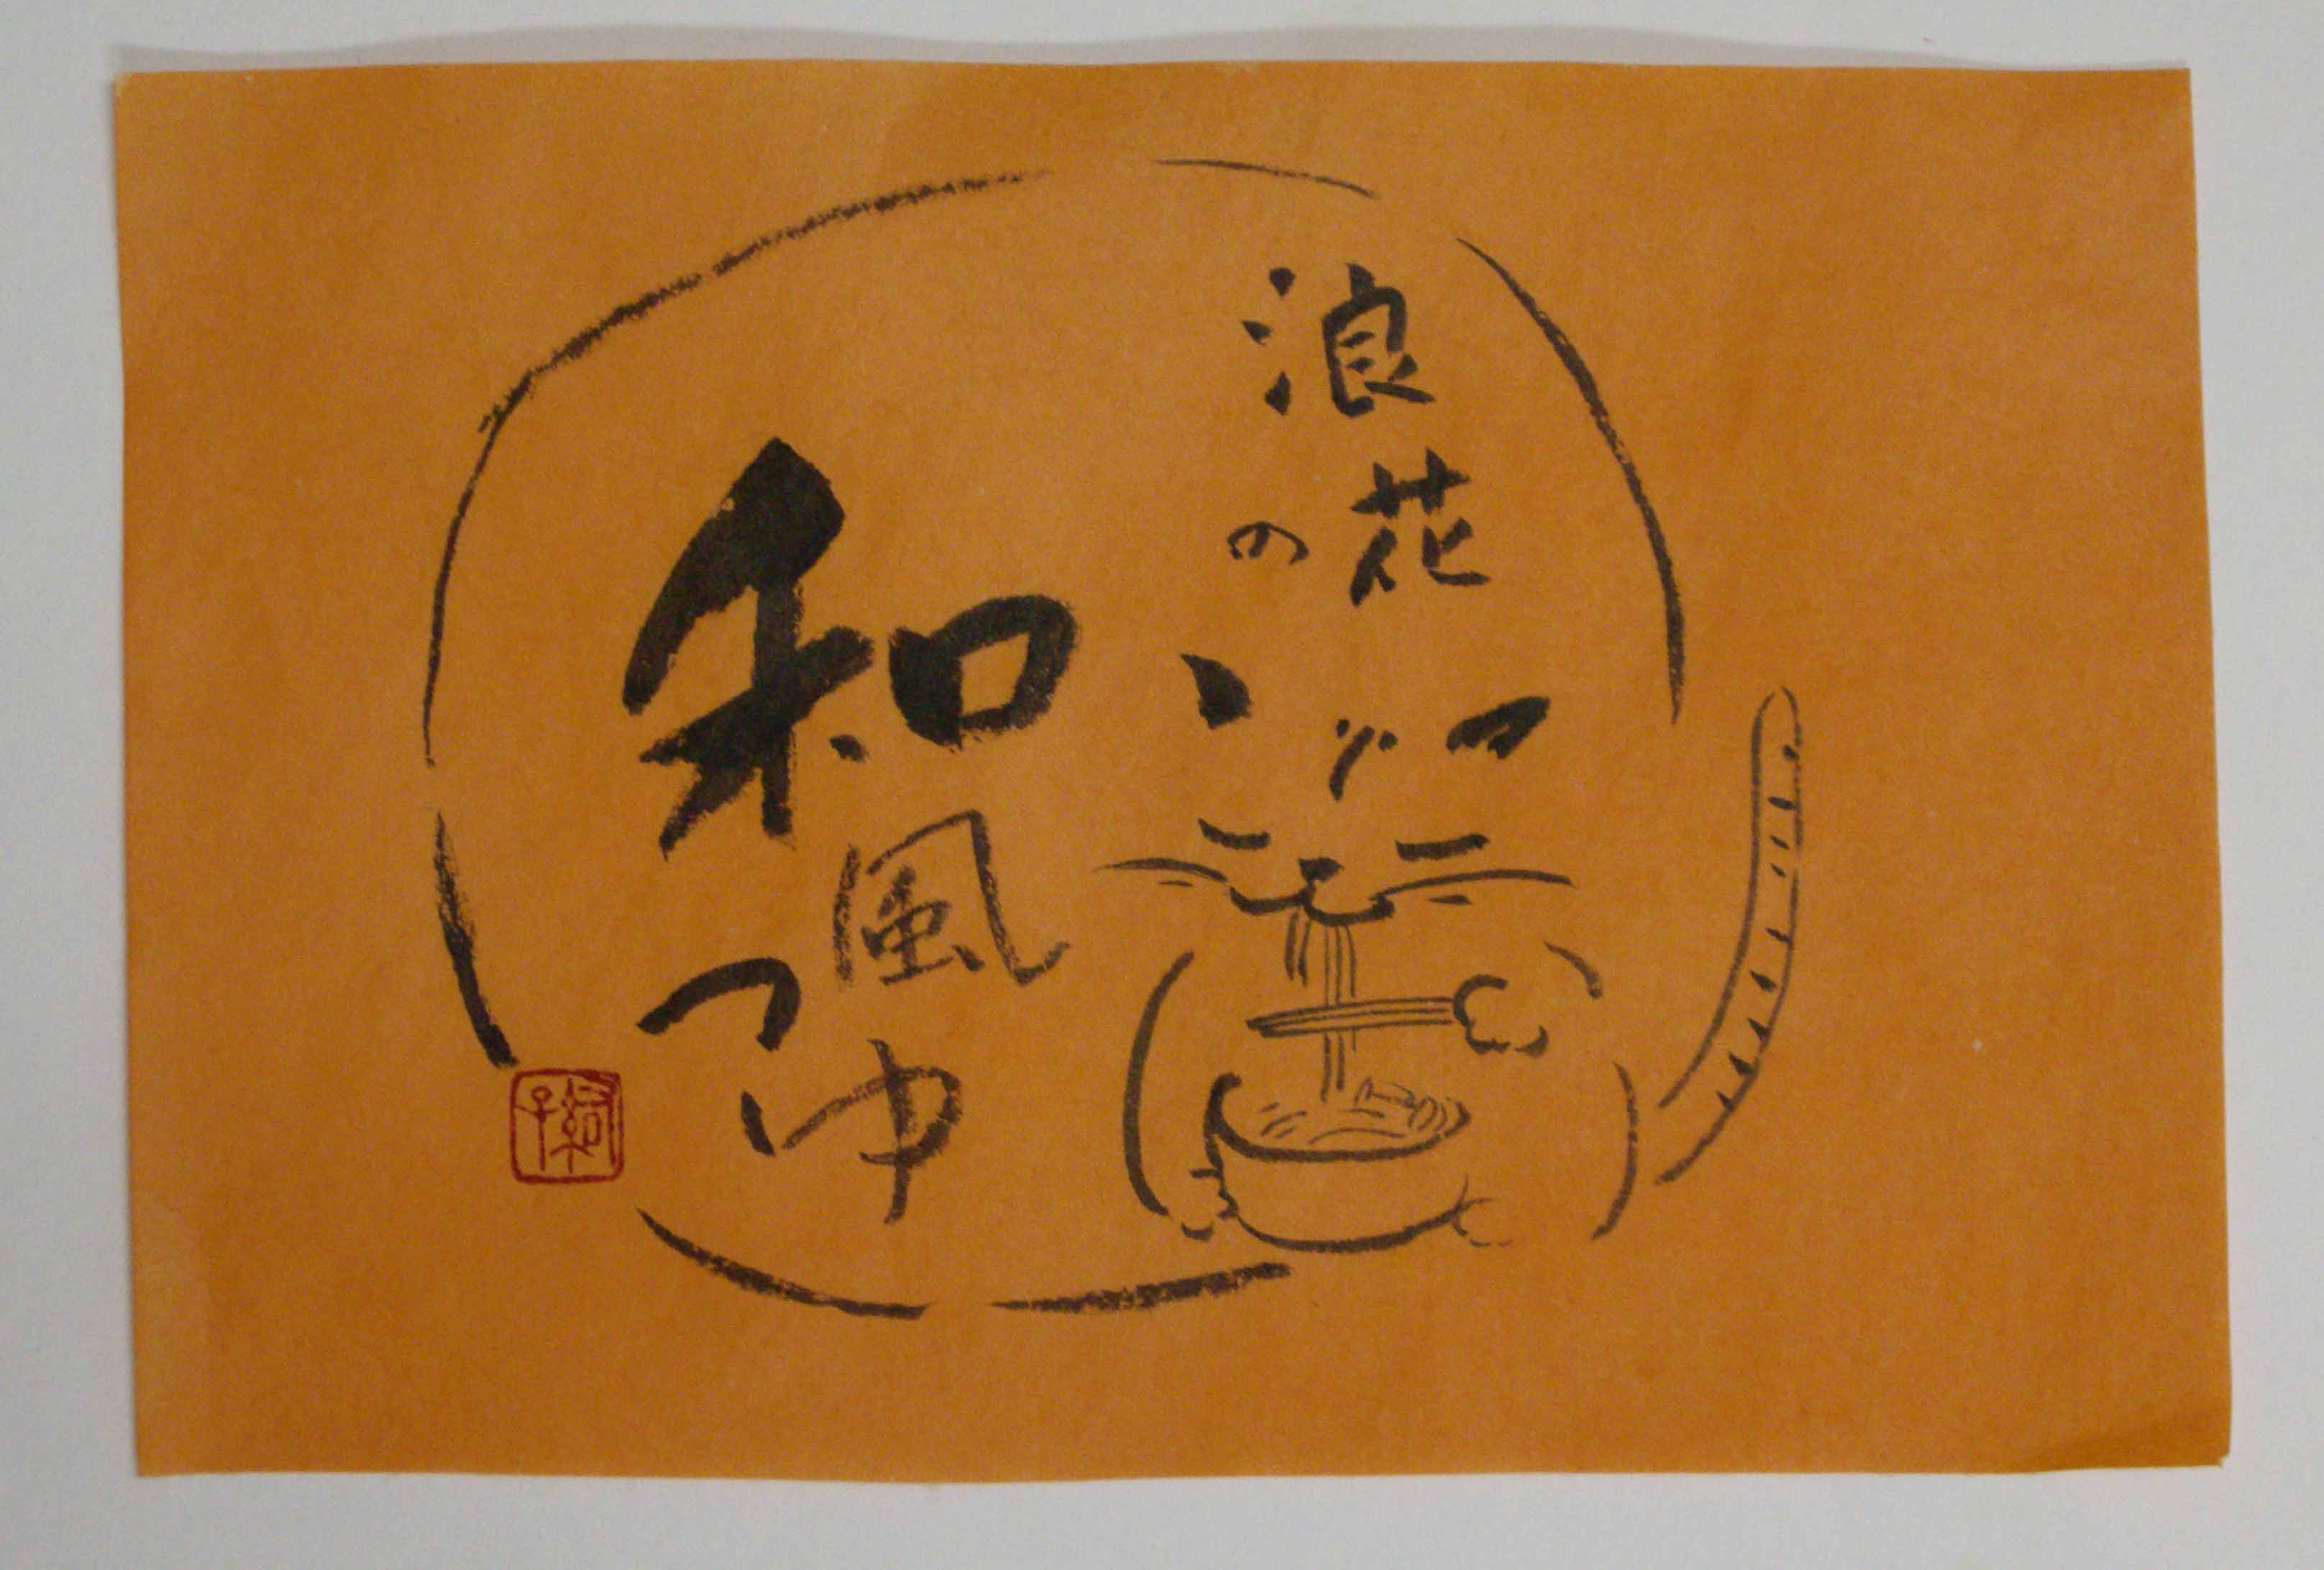 浪花の
和風つゆ